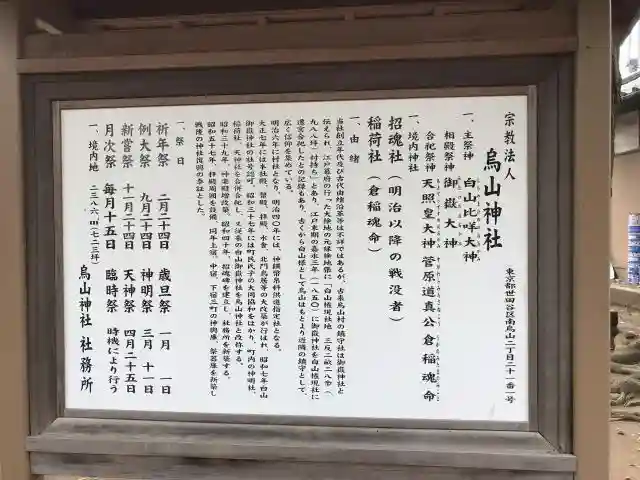 宗教法人
烏山神社
東京都世田谷区南烏山二丁目二十一番一号
一、主祭神 白山比咩大神
相殿祭神 御嶽大神
合祀祭神 天照皇大神 菅原道真公 倉稲魂命
一、境内神社
招魂社(明治以降の戦没者)
稲荷社(倉稲魂命)
一、由緒
当社創立年代及び古代由緒沿革等は不詳ではあるが、古来烏山村の鎮守社は御嶽神社と
伝えられ、江戸幕府の行った大検地の元禄検地帳に「白山権現社地 三反二畝二八歩(
九八八坪)村持ち」とあり、江戸末期の嘉永三年(一八五〇)に御嶽神社を白山権現社に
遷宮合祀したとの記録もあり、古くから白山様として烏山はもとより近隣の鎮守として、
広く信仰を集めている。
明治六年に村社となり、明治四〇年には、神饌幣帛料供進指定社となる。
大正七年には本社殿、幣殿、拝殿、水舎、北門鳥居等の大改築が行はれ、昭和七年白山
御嶽神社の社号認可、昭和三十七年には町民氏子の大同協和をはかり、町内の神明社、
稲荷社、天神社を合併合祀し、又従来の白山御嶽神社を烏山神社と改称する。
昭和三十九年、神楽殿増改築、昭和四十年、招魂碑を建立し、社務所を新築する。
昭和五十七年、拝殿周囲を設備、同年上宿、中宿、下宿三町の神輿庫、祭器庫を新築し
戦後の神社復興の奉証とした。
一、祭日
祈年祭 二月二十四日 歳旦祭 一月 一日
例大祭 九月二十四日 神明祭 三月 十一日
新嘗祭 十一月二十四日 天神祭 四月二十五日
月次祭 毎月十五日 臨時祭 時機により行う
一、境内地 二三八六㎡(七二三坪)
烏山神社 社務所